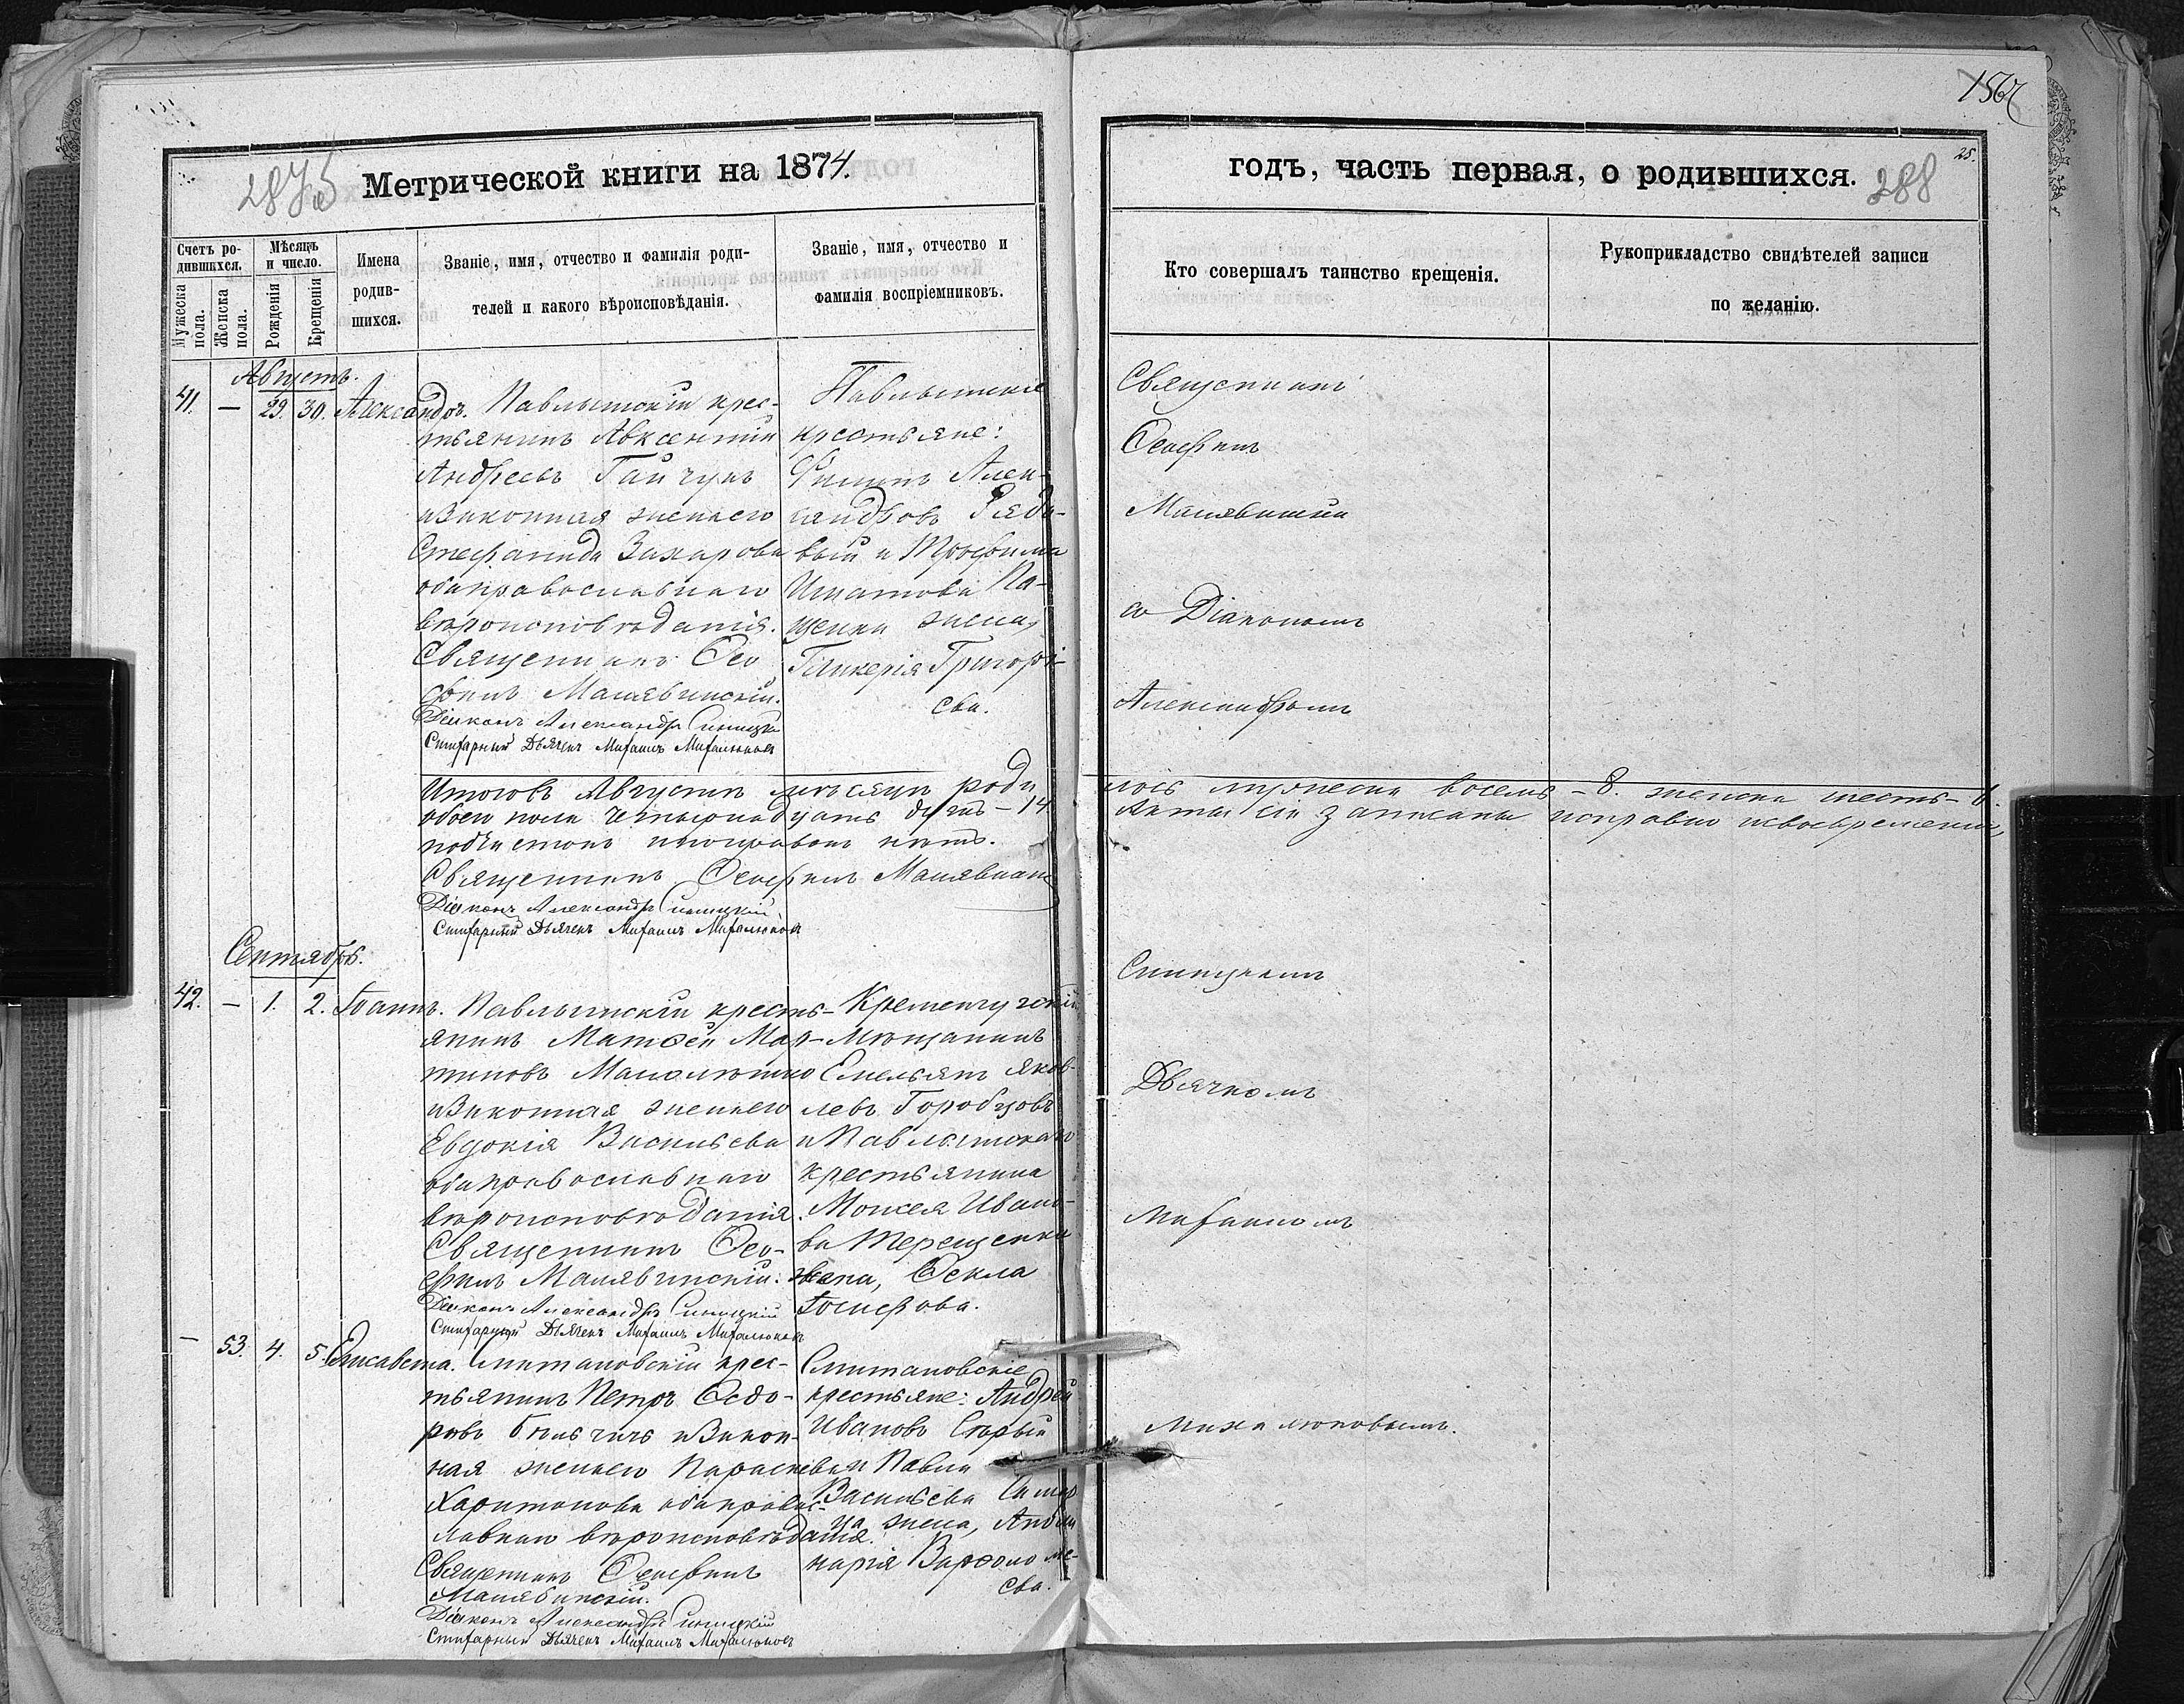 156
2875
Метрической книги на 1874.
годъ, часть первая, о родившихся.
288
25.
Счетъ ро-
дившихся.
Мужеска
пола.
Женска
пола.
Мѣсяцъ
и число.
Рожденія
Крещенія
Имена
родив-
шихся.
Званіе, имя, отчество и фамилія роди-
телей и какого вѣроисповѣданія.
Званіе, имя, отчество и
фамилія воспріемниковъ.
Кто совершалъ таинство крещенія.
Рукоприкладство свидѣтелей записи
по желанію.
Августъ.
41. — 29. 30. Александръ.
Павлышскій крес-
тьянинъ Авксентій
Андреевъ Гайчукъ
изаконная женаего
Стефанида Захарова
обаправославнаго
вѣроисповѣданія.
Священникъ Ѳео
филъ Манявинскій.
Діаконъ Александръ Синицкій
Стихарный Дьячекъ Михаилъ Михалюковъ
Павлышскіе
крестьяне:
Филипъ Алек-
сандровъ Рядо-
вый и Трофима
Игнатова Па-
щенки жена,
Гликерія Григорі-
ева.
Священникъ
Ѳеофилъ
Манявинскій
со Діакономъ
Александромъ
Синицкимъ
Дьячкомъ
Михаиломъ
Михалюковымъ.
Итоговъ Августъ мѣсяцъ роди
лось мужеска восемь – 8. женска шесть – 6.
обоего пола четырнадцать душъ – 14
Актыи сіи записаны исправно исвоевременно,
подчистокъ ипоправокъ нѣтъ.
Священникъ Ѳеофилъ Манявинскій
Діаконъ Александръ Синицкій
Стихарный Дьячекъ Михаилъ Михалюковъ
Сентябрь.
42. — 1. 2. Іоаннъ.
Павлышскій кресть-
янинъ Матѳей Мар-
тиновъ
изаконная женаего
Евдокія Васильева
обаправославнаго
вѣроисповѣданія.
Священникъ Ѳео-
филъ Манявинскій.
Діаконъ Александръ Синицкій
Стихарный Дьячекъ Михаилъ Михалюковъ
Кременчугскій
Мѣщанинъ
Емельянъ Яков-
левъ Горобцовъ
и Павлышскаго
крестьянина
Моисея Ивано-
ва Терещенка
жена, Ѳекла
Іосифова.
— 53. 4. 5. Елисавета.
Онитановскій крес-
тьянинъ Петръ Ѳедо-
ровъ изакон-
ная женаего Параскева
Харитонова обаправос-
лавнаго вѣроисповѣданія.
Священникъ Ѳеофилъ
Манявинскій.
Діаконъ Александръ Синицкій
Стихарный Дьячекъ Михаилъ Михалюковъ
Онитановскіе
крестьяне: Андрей
Ивановъ Сѣрый
и Павла
Васильева
жена, Аполи
нарія Варѳоломе-
ева.